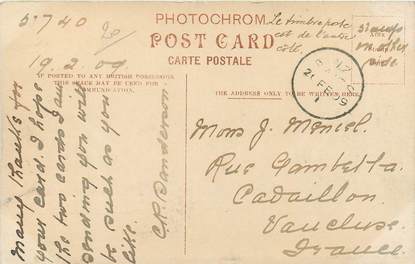 51740
20/
PHOTOCHROM.
POST CARD
CARTE POSTALE
Le timbre poste
est de l'autre
côté.
stamps
on other
side.
19.2.09
TO
TO ANY BRITISH POSSESSION
THIS SPACE MAY BE USED FOR
COMMUNICATION.
THE ADDRESS ONLY TO BE WRITTEN HERE.
21 FE 09
1
Many thanks for
your card. I hope
the two cards I am
sending you will
be such as you
like.
C.R. Sanderson
Mons J. Meniel.
Rue Gambetta.
Cadaillon.
Vaucluse.
France.